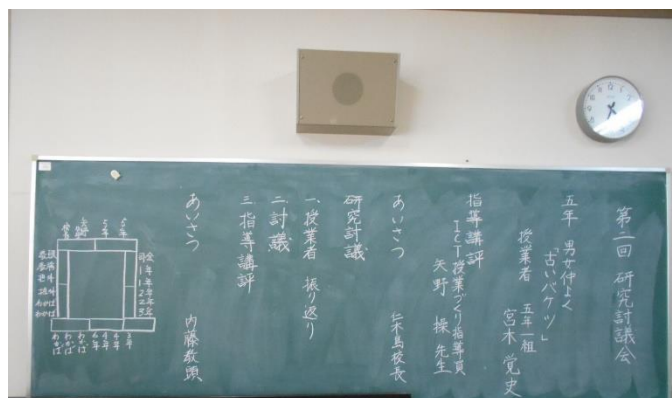 第二回 研究討議会
五年 男女仲よく
「古いバケツ」
授業者 五年一組
宮木 覚史
指導講評
ICT授業づくり指導員
矢野 操先生
あいさつ 仁木島校長
研究討議
一、授業者 振り返り
二、討議
三、指導講評
あいさつ 内藤教頭